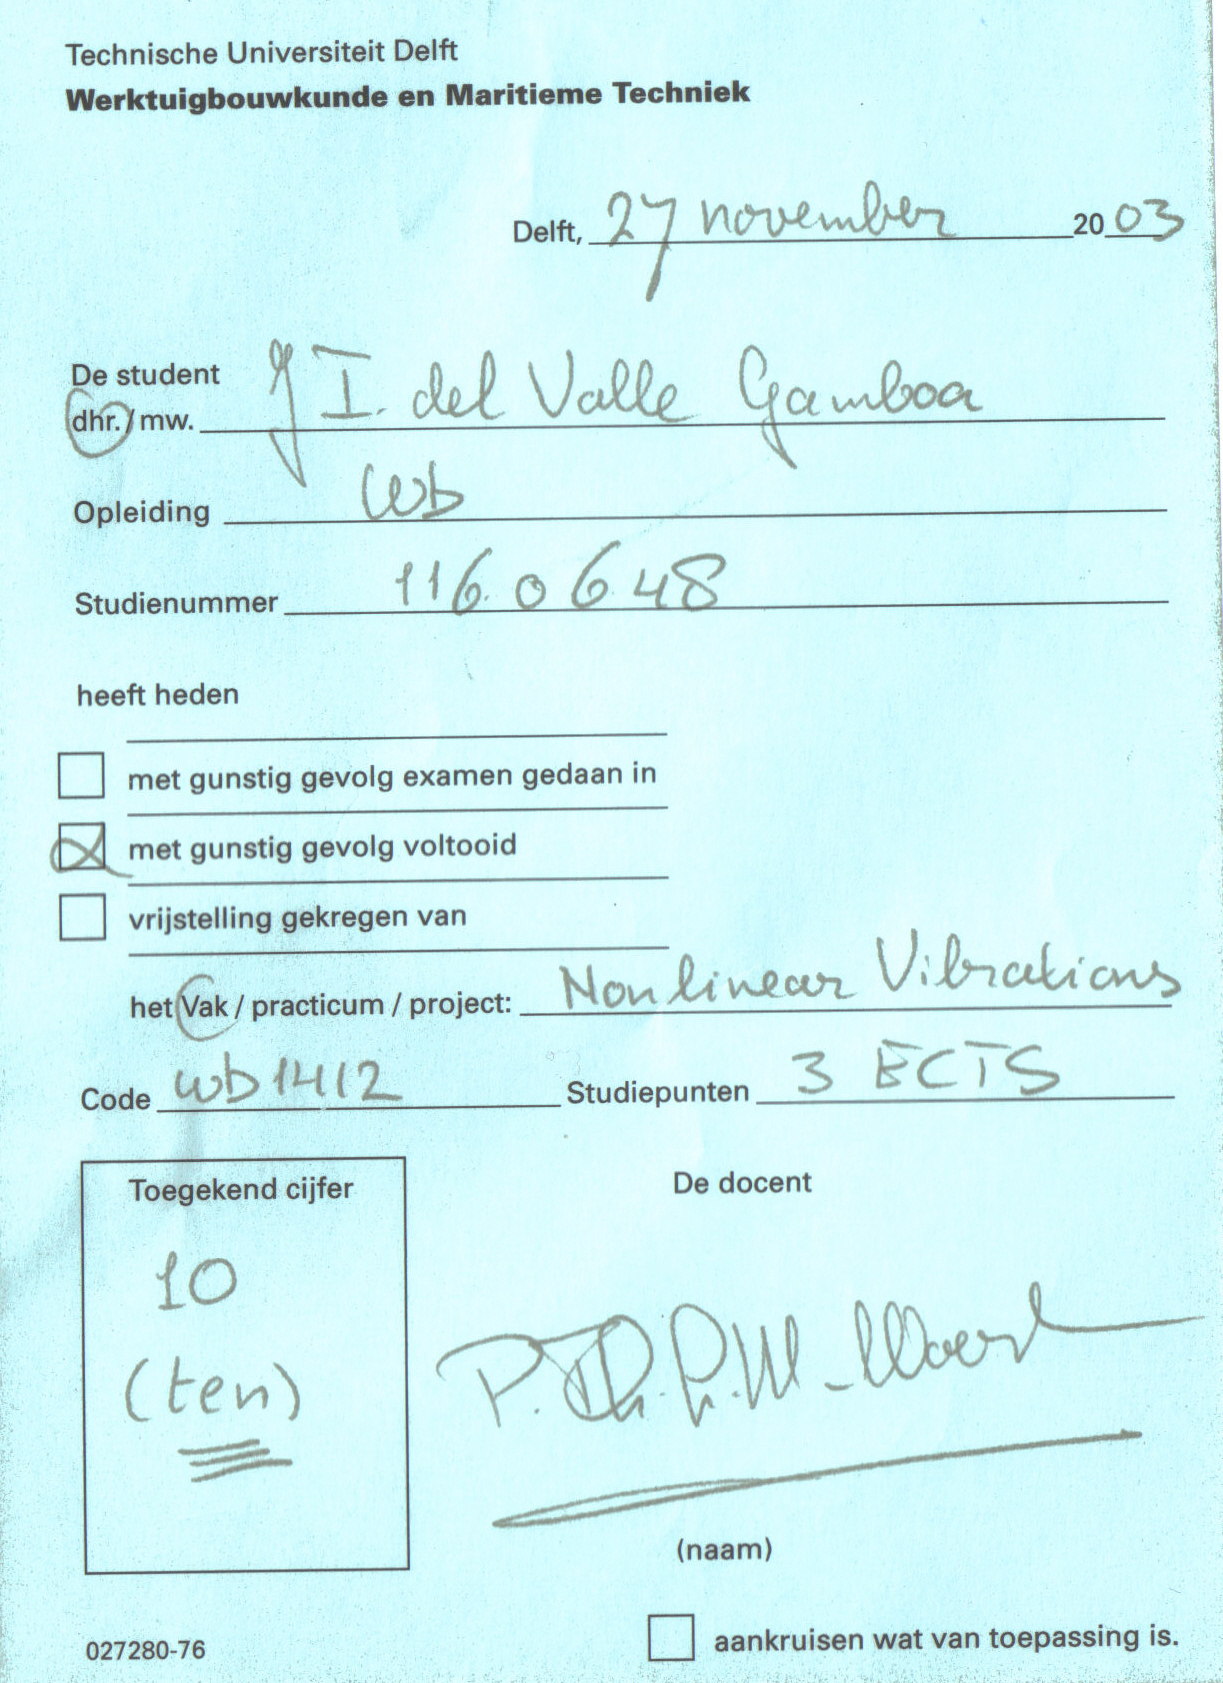 Technische Universiteit Delft
Werktuigbouwkunde en Maritieme Techniek
Delft, 27 november 2003
De student
dhr. / mw. J I. del Valle Gamboa
Opleiding wb
Studienummer 1160648
heeft heden
met gunstig gevolg examen gedaan in
met gunstig gevolg voltooid
vrijstelling gekregen van
het Vak / practicum / project: Nonlinear Vibrations
Code wb1412 Studiepunten 3 ECTS
Toegekend cijfer De docent
10
(ten)
(naam)
027280-76 aankruisen wat van toepassing is.